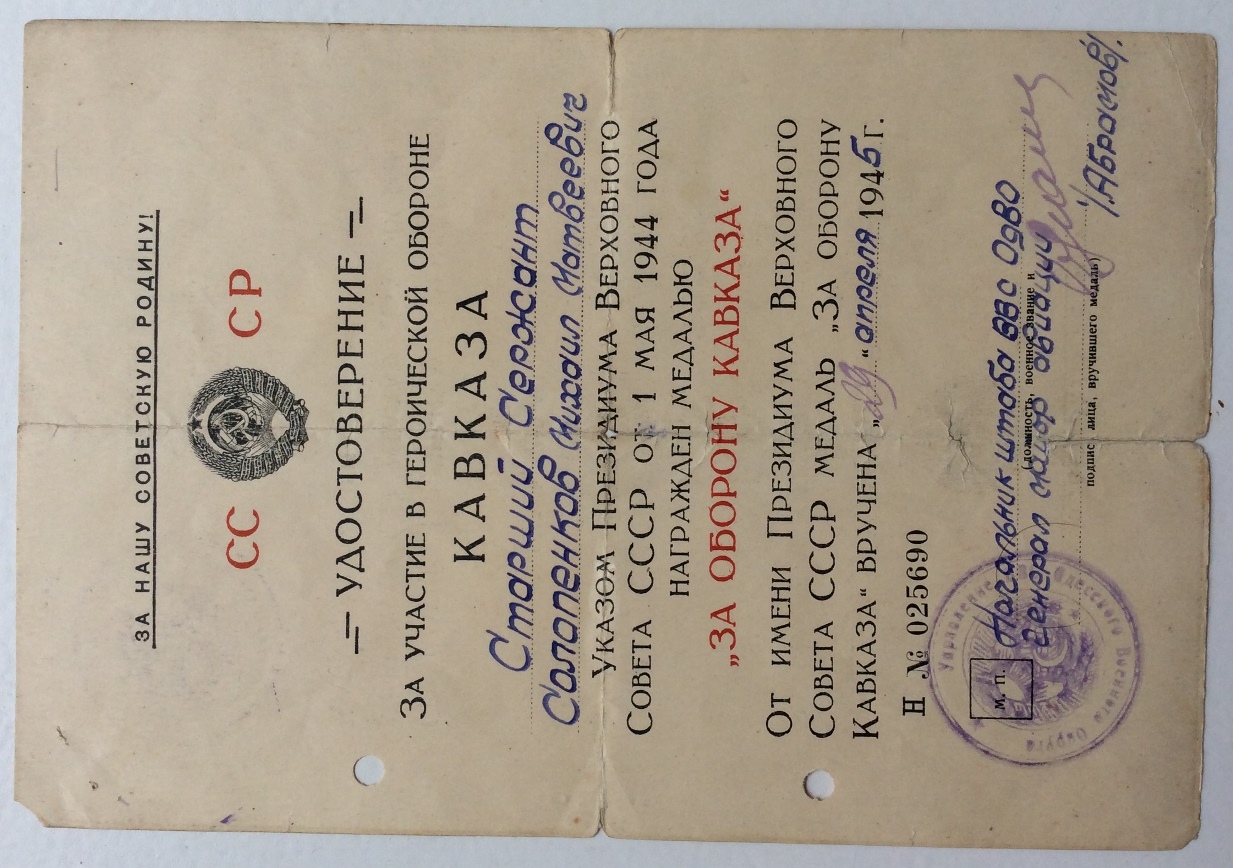 ЗА НАШУ СОВЕТСКУЮ РОДИНУ!
СС СР
УДОСТОВЕРЕНИЕ
ЗА УЧАСТИЕ В ГЕРОИЧЕСКОЙ ОБОРОНЕ
КАВКАЗА
Старший Сержант
Солопенков Михаил Матвеевич
УКАЗОМ ПРЕЗИДИУМА ВЕРХОВНОГО
СОВЕТА СССР ОТ 1 МАЯ 1944 ГОДА
НАГРАЖДЕН МЕДАЛЬЮ
„ЗА ОБОРОНУ КАВКАЗА“
ОТ ИМЕНИ ПРЕЗИДИУМА ВЕРХОВНОГО
СОВЕТА СССР МЕДАЛЬ „ЗА ОБОРОНУ
КАВКАЗА“ ВРУЧЕНА „29“ апреля 1945 г.
Н № 025690
М. П.
Начальник штаба ВВС ОдВО
(должность, военное звание и
генерал майор авиации
подпись лица, вручившего медаль)
/Абрамов/.
Управление Одесского Военного Округа